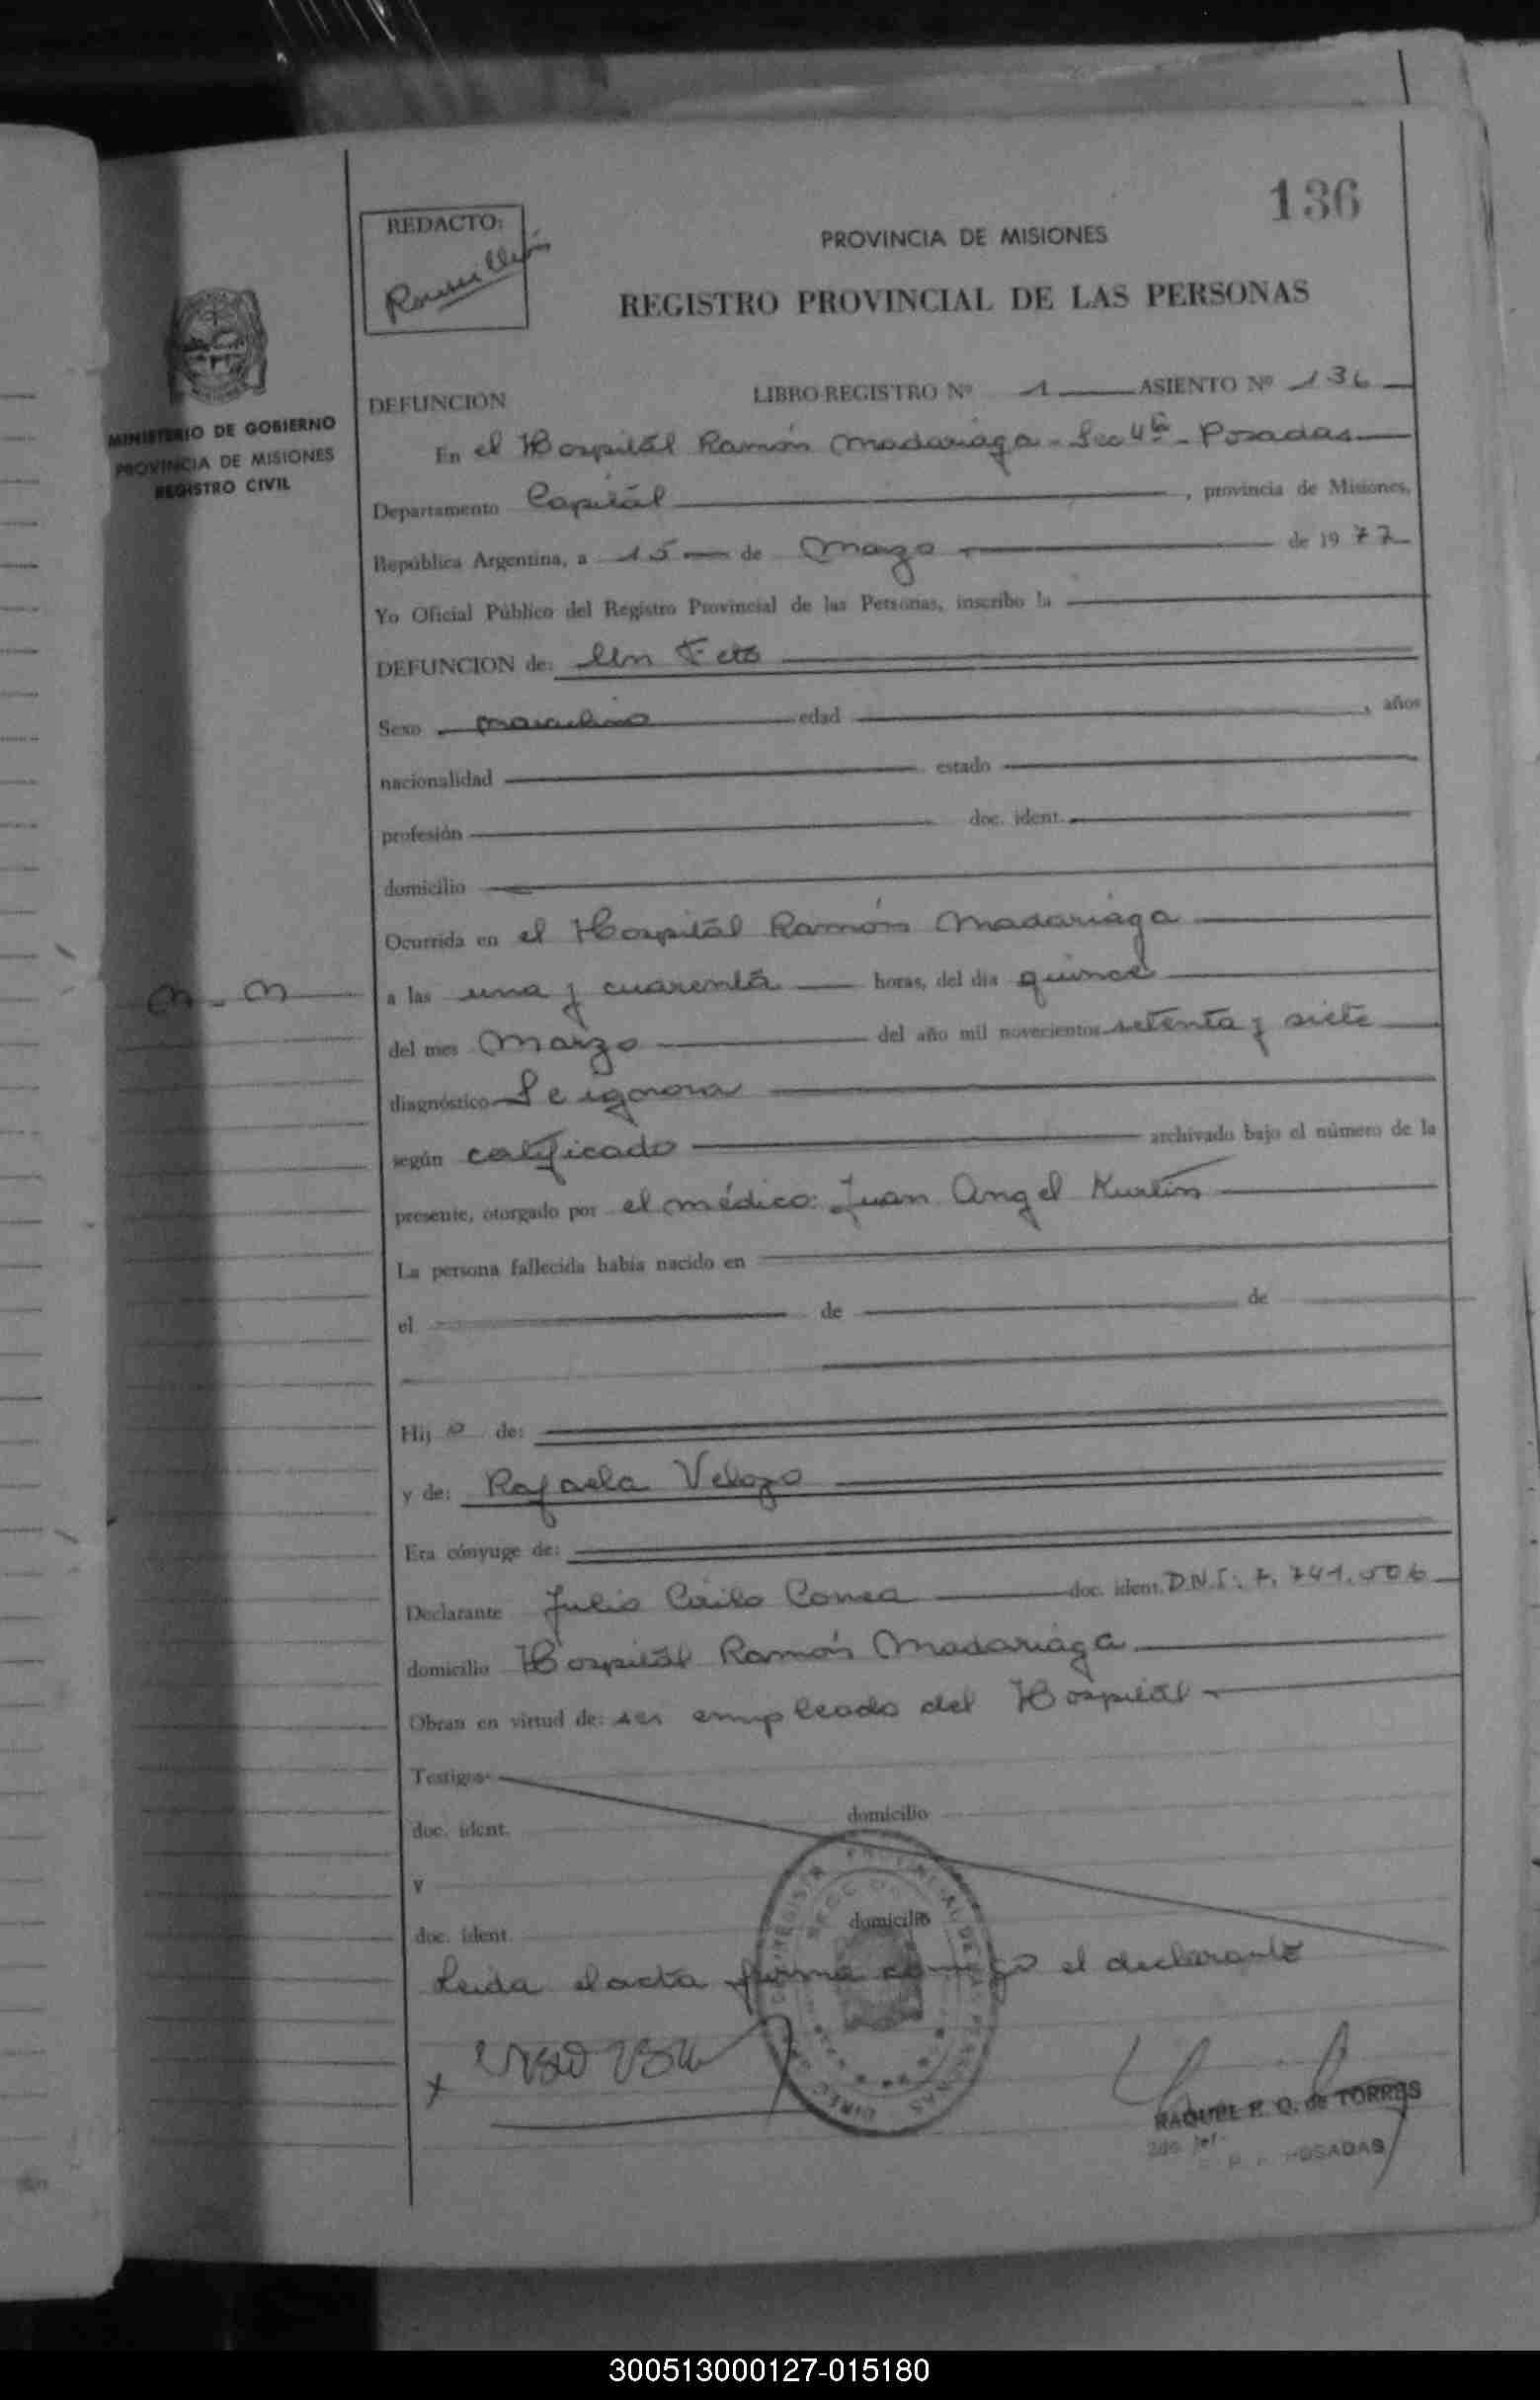 136
REDACTO:
PROVINCIA DE MISIONES
REGISTRO PROVINCIAL DE LAS PERSONAS
MINISTERIO DE GOBIERNO
PROVINCIA DE MISIONES
REGISTRO CIVIL
DEFUNCION LIBRO-REGISTRO Nº 1 ASIENTO Nº 136
En el Hospitál Ramón Madariaga - Sec 4ta - Posadas
Departamento Capitál, provincia de Misiones,
República Argentina, a 15 de Marzo de 1977
Yo Oficial Público del Registro Provincial de las Personas, inscribo la
DEFUNCION de: Un Feto
Sexo masculino edad , años
nacionalidad estado
profesión doc. ident.
domicilio
Ocurrida en el Hospitál Ramón Madariaga
N-N a las una y cuarenta horas, del día quince
del mes Marzo del año mil novecientos setenta y siete
diagnóstico Se ignora
según certificado archivado bajo el número de la
presente, otorgado por el médico: Juan Angel
La persona fallecida había nacido en
el de de
Hijo de:
y de: Rafaela Velozo
Era cónyuge de:
Declarante Julio Cirilo Correa doc. ident. D.N.I: 7.741.006
domicilio Hospitál Ramón Madariaga
Obran en virtud de: ser empleado del Hospitál
Testigos
doc. ident. domicilio
y
doc. ident. domicilio
Leida el acta firma conmigo el declarante
RAQUEL P. Q. de TORRES
POSADAS
300513000127-015180